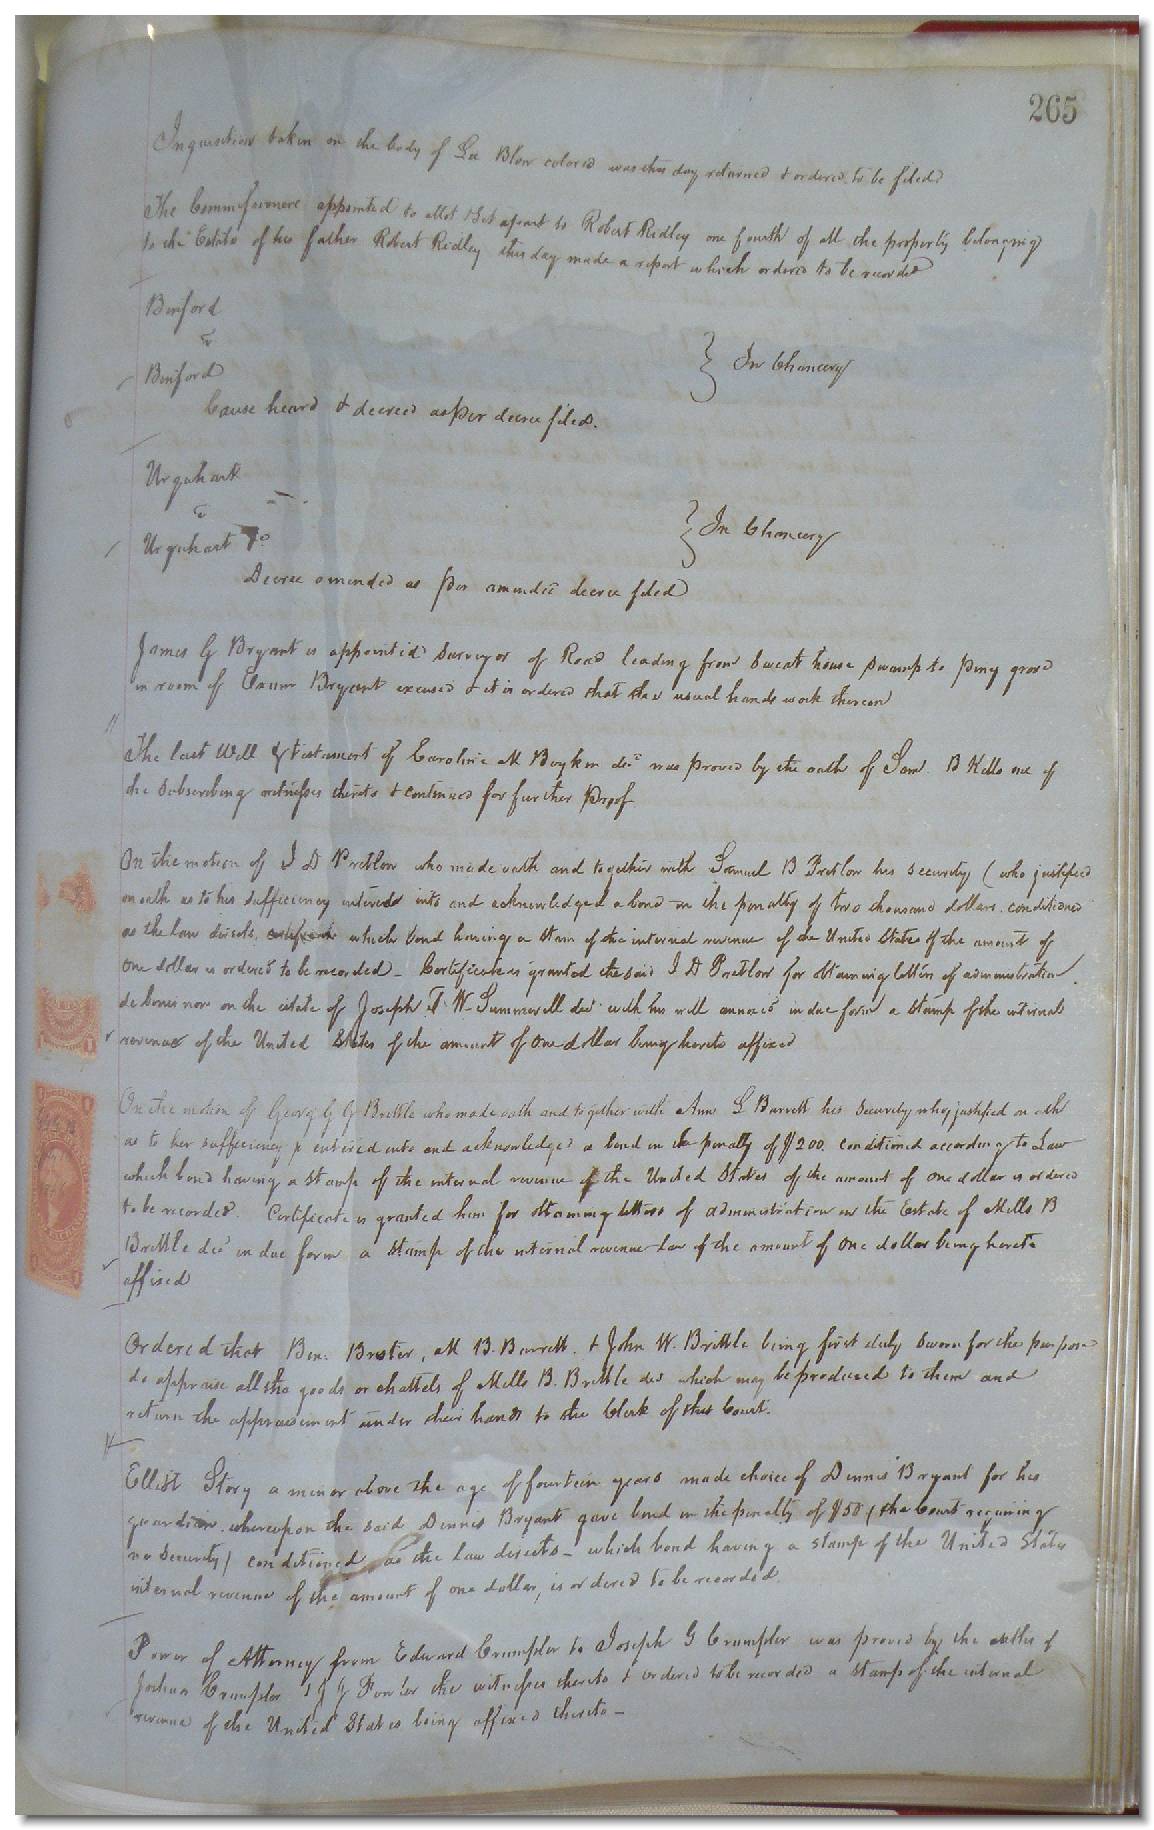 265
Inquisition taken on the body of Lee Blow colored was this day returned & ordered to be filed
The Commissioners appointed to allot & set apart to Robert Ridley one fourth of all the property belonging
to the Estate of his father Robert Ridley this day made a report which ordered to be recorded
Binford
&
Binford
} In Chancery
Cause heard & decreed as per decree filed.
Urquhart
&
Urquhart
} In Chancery
Decree amended as per amended decree filed
James G Bryant is appointed Surveyor of Road leading from Sweat house Swamp to piny grove
in room of Bryant excused & it is ordered that the usual hands work thereon
The last Will & testament of Caroline M Boykin decd was proved by the oath of Saml. B Kello one of
the subscribing witnesses thereto & continued for further Proof
On the motion of J D Pretlow who made oath and together with Samuel B Pretlow his security (who justified
on oath as to his sufficiency entered into and acknowledged a bond in the penalty of two thousand dollars. conditioned
as the law directs, which bond having a stam of the internal revenue of the United States of the amount of
One dollar is ordered to be recorded – Certificate is granted the said J D Pretlow for obtaining letters of administration
de bonis non on the estate of Joseph T. W. Summerell decd with his will annexed in due form a stamp of the internal
revenue of the United States of the amount of One dollar being hereto affixed
On the motion of George G G Brittle who made oath and together with Ann L Barrett his Security who justified on oath
as to her sufficiency entered into and acknowledged a bond in the penalty of $200. conditioned according to Law
which bond having a stamp of the internal revenue of the United States of the amount of one dollar is ordered
to be recorded. Certificate is granted him for obtaining letters of administration on the Estate of Mills B
Brittle decd in due form a stamp of the internal revenue law of the amount of one dollar being hereto
affixed
Ordered that Ben. M B. Barrett. & John W. Brittle being first duly sworn for the purpose
do appraise all the goods or chattels of Mills B. Brittle decd which may be produced to them and
return the appraisement under their hands to the Clerk of this Court.
Elliott Story a minor above the age of fourteen years made choice of Dennis Bryant for his
guardian. whereupon the said Dennis Bryant gave bond in the penalty of $50 (the Court requiring
no security) conditioned as the law directs – which bond having a stamp of the United States
internal revenue of the amount of one dollar, is ordered to be recorded.
Power of Attorney from Edward Crumpler to Joseph G Crumpler was proved by the oaths of
Joshua Crumpler & J J Fowler the witnesses thereto & ordered to be recorded a stamp of the internal
revenue of the United States being affixed thereto –